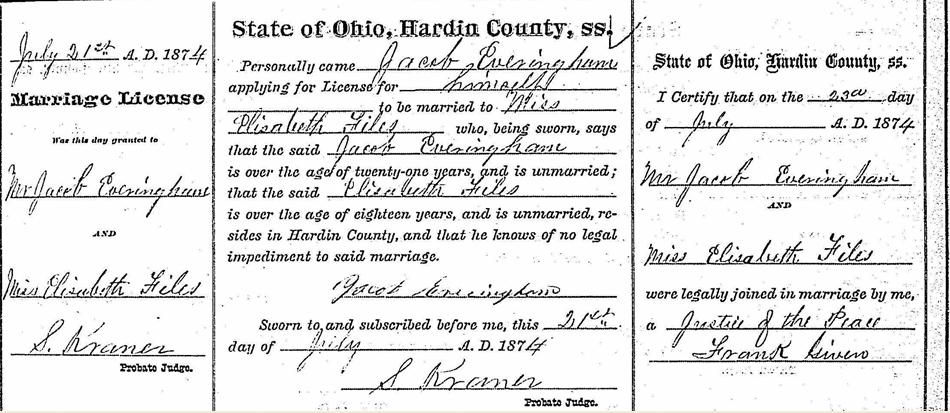 July 21st A. D. 1874
Marriage License
Was this day granted to
Mr Jacob Everingham
AND
Miss Elisabeth Files
S. Kraner
Probate Judge.
State of Ohio, Hardin County, ss.
Personally came Jacob Everingham
applying for License for himself
to be married to Miss
Elisabeth Files who, being sworn, says
that the said Jacob Everingham
is over the age of twenty-one years, and is unmarried;
that the said Elisabeth Files
is over the age of eighteen years, and is unmarried, re-
sides in Hardin County, and that he knows of no legal
impediment to said marriage.
Jacob Everingham
Sworn to and subscribed before me, this 21st
day of July A. D. 1874
S Kraner
Probate Judge.
State of Ohio, Hardin County, ss.
I Certify that on the 23d day
of July A. D. 1874
Mr Jacob Everingham
AND
Miss Elisabeth Files
were legally joined in marriage by me,
a Justice of the Peace
Frank Given